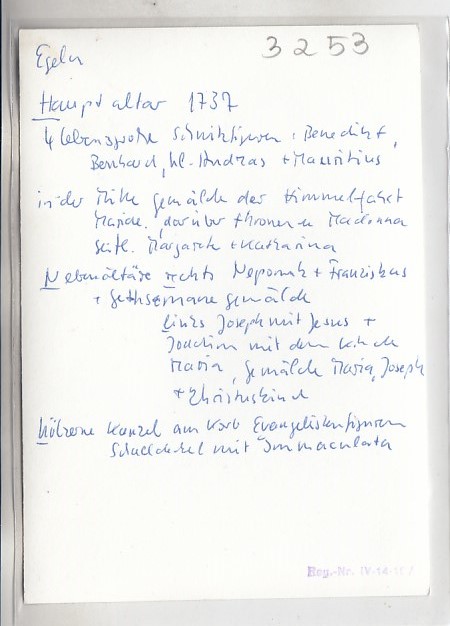 Egeln
3253
Hauptaltar 1737
4 lebensgroße Schnitzfiguren: Benedikt,
Bernhard, hl. Andreas + Mauritius
in der Mitte Gemälde der Himmelfahrt
Mariae, darüber thronende Madonna
seitl. Margarete + Katharina
Nebenaltäre rechts Nepomuk + Franziskus
+ Gethsemane gemälde
links Joseph mit Jesus +
Joachim mit dem Kinde
Maria, Gemälde Maria, Joseph
+ Christuskind
hölzerne Kanzel am Korb Evangelistenfiguren
Schalldeckel mit Immaculata
Reg.-Nr. IV-14-